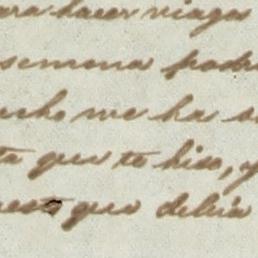 ara hacer viages
semena podr
ucho me ha s
ta que te hiso, y
uesto que debia